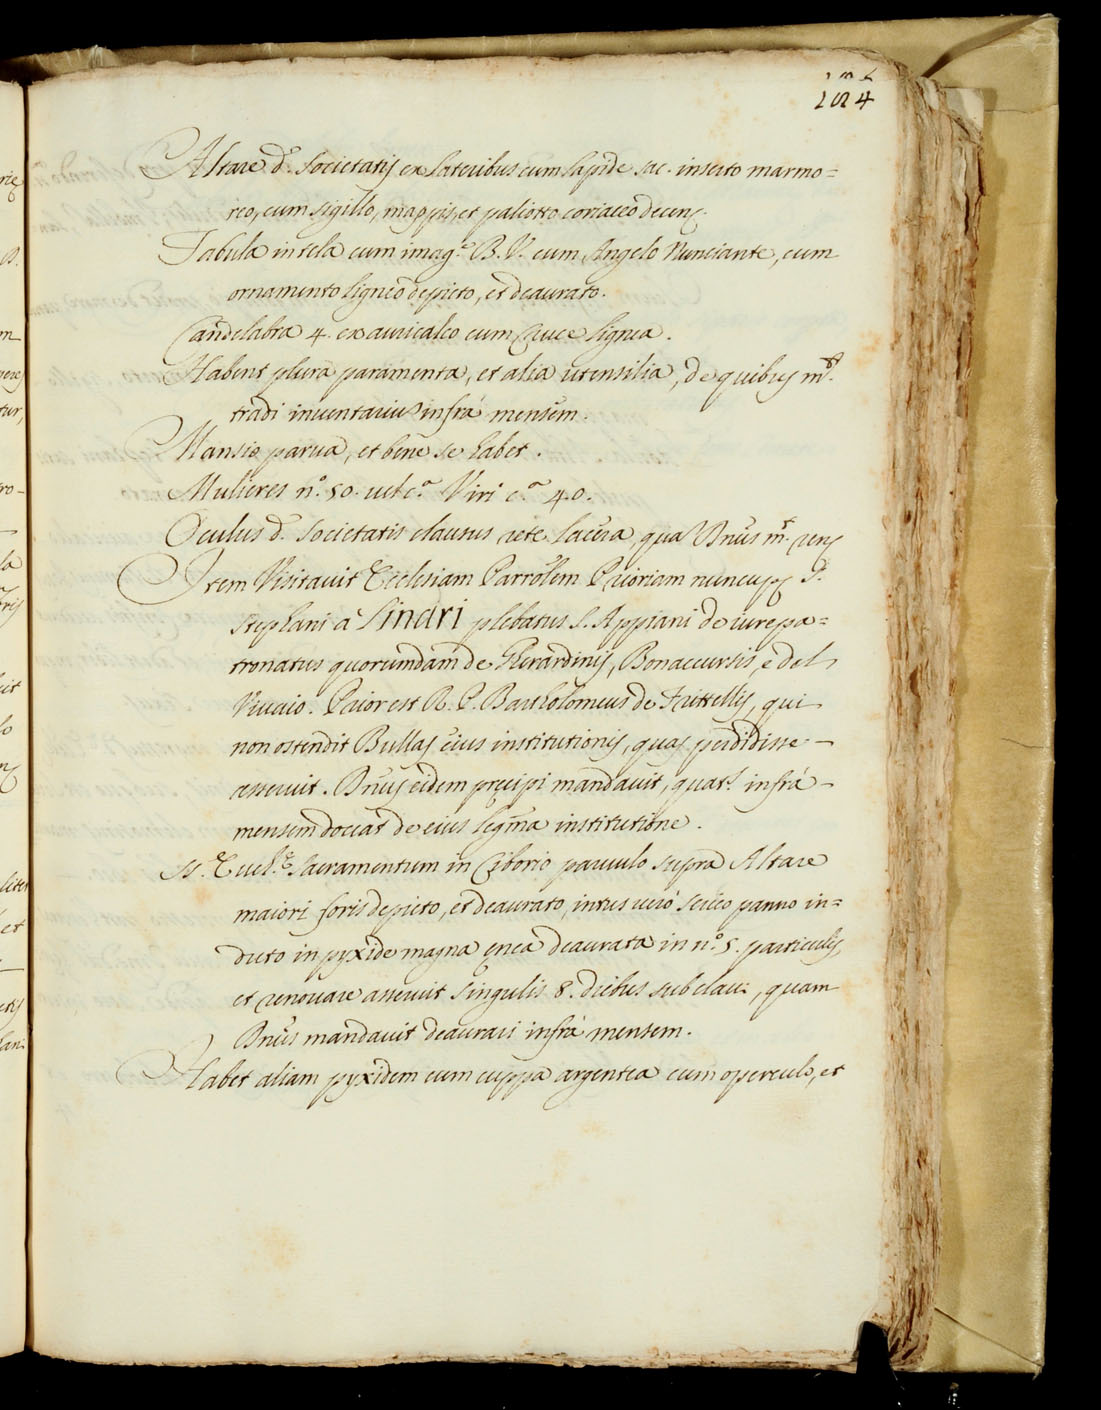 184
Altare d.ᵉ Societatis ex lateribus cum lapide sac. inserto marmo=
reo, cum sigillo, mappis, et paliotto coriaceo decenʒ.
Tabula in tela cum imag.ᵉ B. V. cum Angelo Nunciante, cum
ornamento ligneo depicto, et deaurato.
Candelabra 4. ex auricalco cum Cruce lignea.
Habent plura paramenta, et alia utensilia, de quibus m.ᵗ
tradi inventarius infrà mensem.
Mansio parva, et bene se habet.
Mulieres n.º 50. vel c.ª Viri c.ª 40.
Oculus d. Societatis clausus rete lacera, qua Bnûs m.ᵗ renʒ
Item Visitavit Ecclesiam Parrôlem Prioriam nuncupʒ S.
Stephani à Linari plebatus S. Appiani de iurepa=
tronatus quorumdam de Gherardinis, Bonaccursis, e del
Vivaio. Prior est R. P. Bartholomeus de Frittellis, qui
non ostendit Bullas eius institutionis, quas perdidisse
asseruit. Bnûs eidem precipi mandavit, quat.ˢ infrà
mensem doceat de eius legma institutione.
SS. Euch.ᵉ Sacramentum in Ciborio parvulo supra Altare
maiori foris depicto, et deaurato, intus verò sericо panno in=
ducto in pyxide magna ęnea deaurata in n.º 5. particulis,
et renovare asseruit singulis 8. diebus sub clavi, quam
Bnûs mandavit deaurari infrà mensem.
Habet aliam pyxidem cum cuppa argentea cum operculo, et